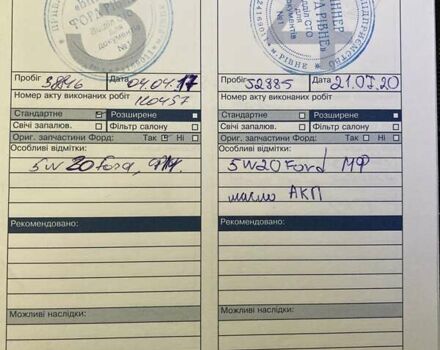 ВІННЕР
ФОРД РІВНЕ
Відділ СТО
Для
документів
№1
м.РІВНЕ
ПІДПРИЄМСТВО
Пробіг Дата 04.04.17
Номер акту виконаних робіт
Стандартне Розширене
Свічі запалюв. Фільтр салону
Ориг. запчастини Форд: Так Ні
Особливі відмітки:
5W20 Ford,
Рекомендовано:
Можливі наслідки:
Пробіг 52885 Дата 21.01.20
Номер акту виконаних робіт
Стандартне Розширене
Свічі запалюв. Фільтр салону
Ориг. запчастини Форд: Так Ні
Особливі відмітки:
5W20 Ford МФ
масло АКП
Рекомендовано:
Можливі наслідки: